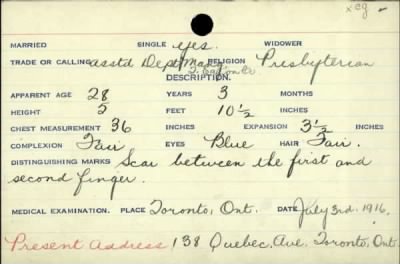 xcg -
MARRIED SINGLE yes. WIDOWER
TRADE OR CALLING asstd Dept Mang RELIGION Presbyterian
T. Eaton Co
DESCRIPTION.
APPARENT AGE 28 YEARS 3 MONTHS
HEIGHT 5 FEET 10 1/2 INCHES
CHEST MEASUREMENT 36 INCHES EXPANSION 3 1/2 INCHES
COMPLEXION Fair EYES Blue HAIR Fair.
DISTINGUISHING MARKS Scar between the first and
second finger.
MEDICAL EXAMINATION. PLACE Toronto, Ont. DATE July 3rd. 1916.
Present Address 138 Quebec, Ave, Toronto, Ont.